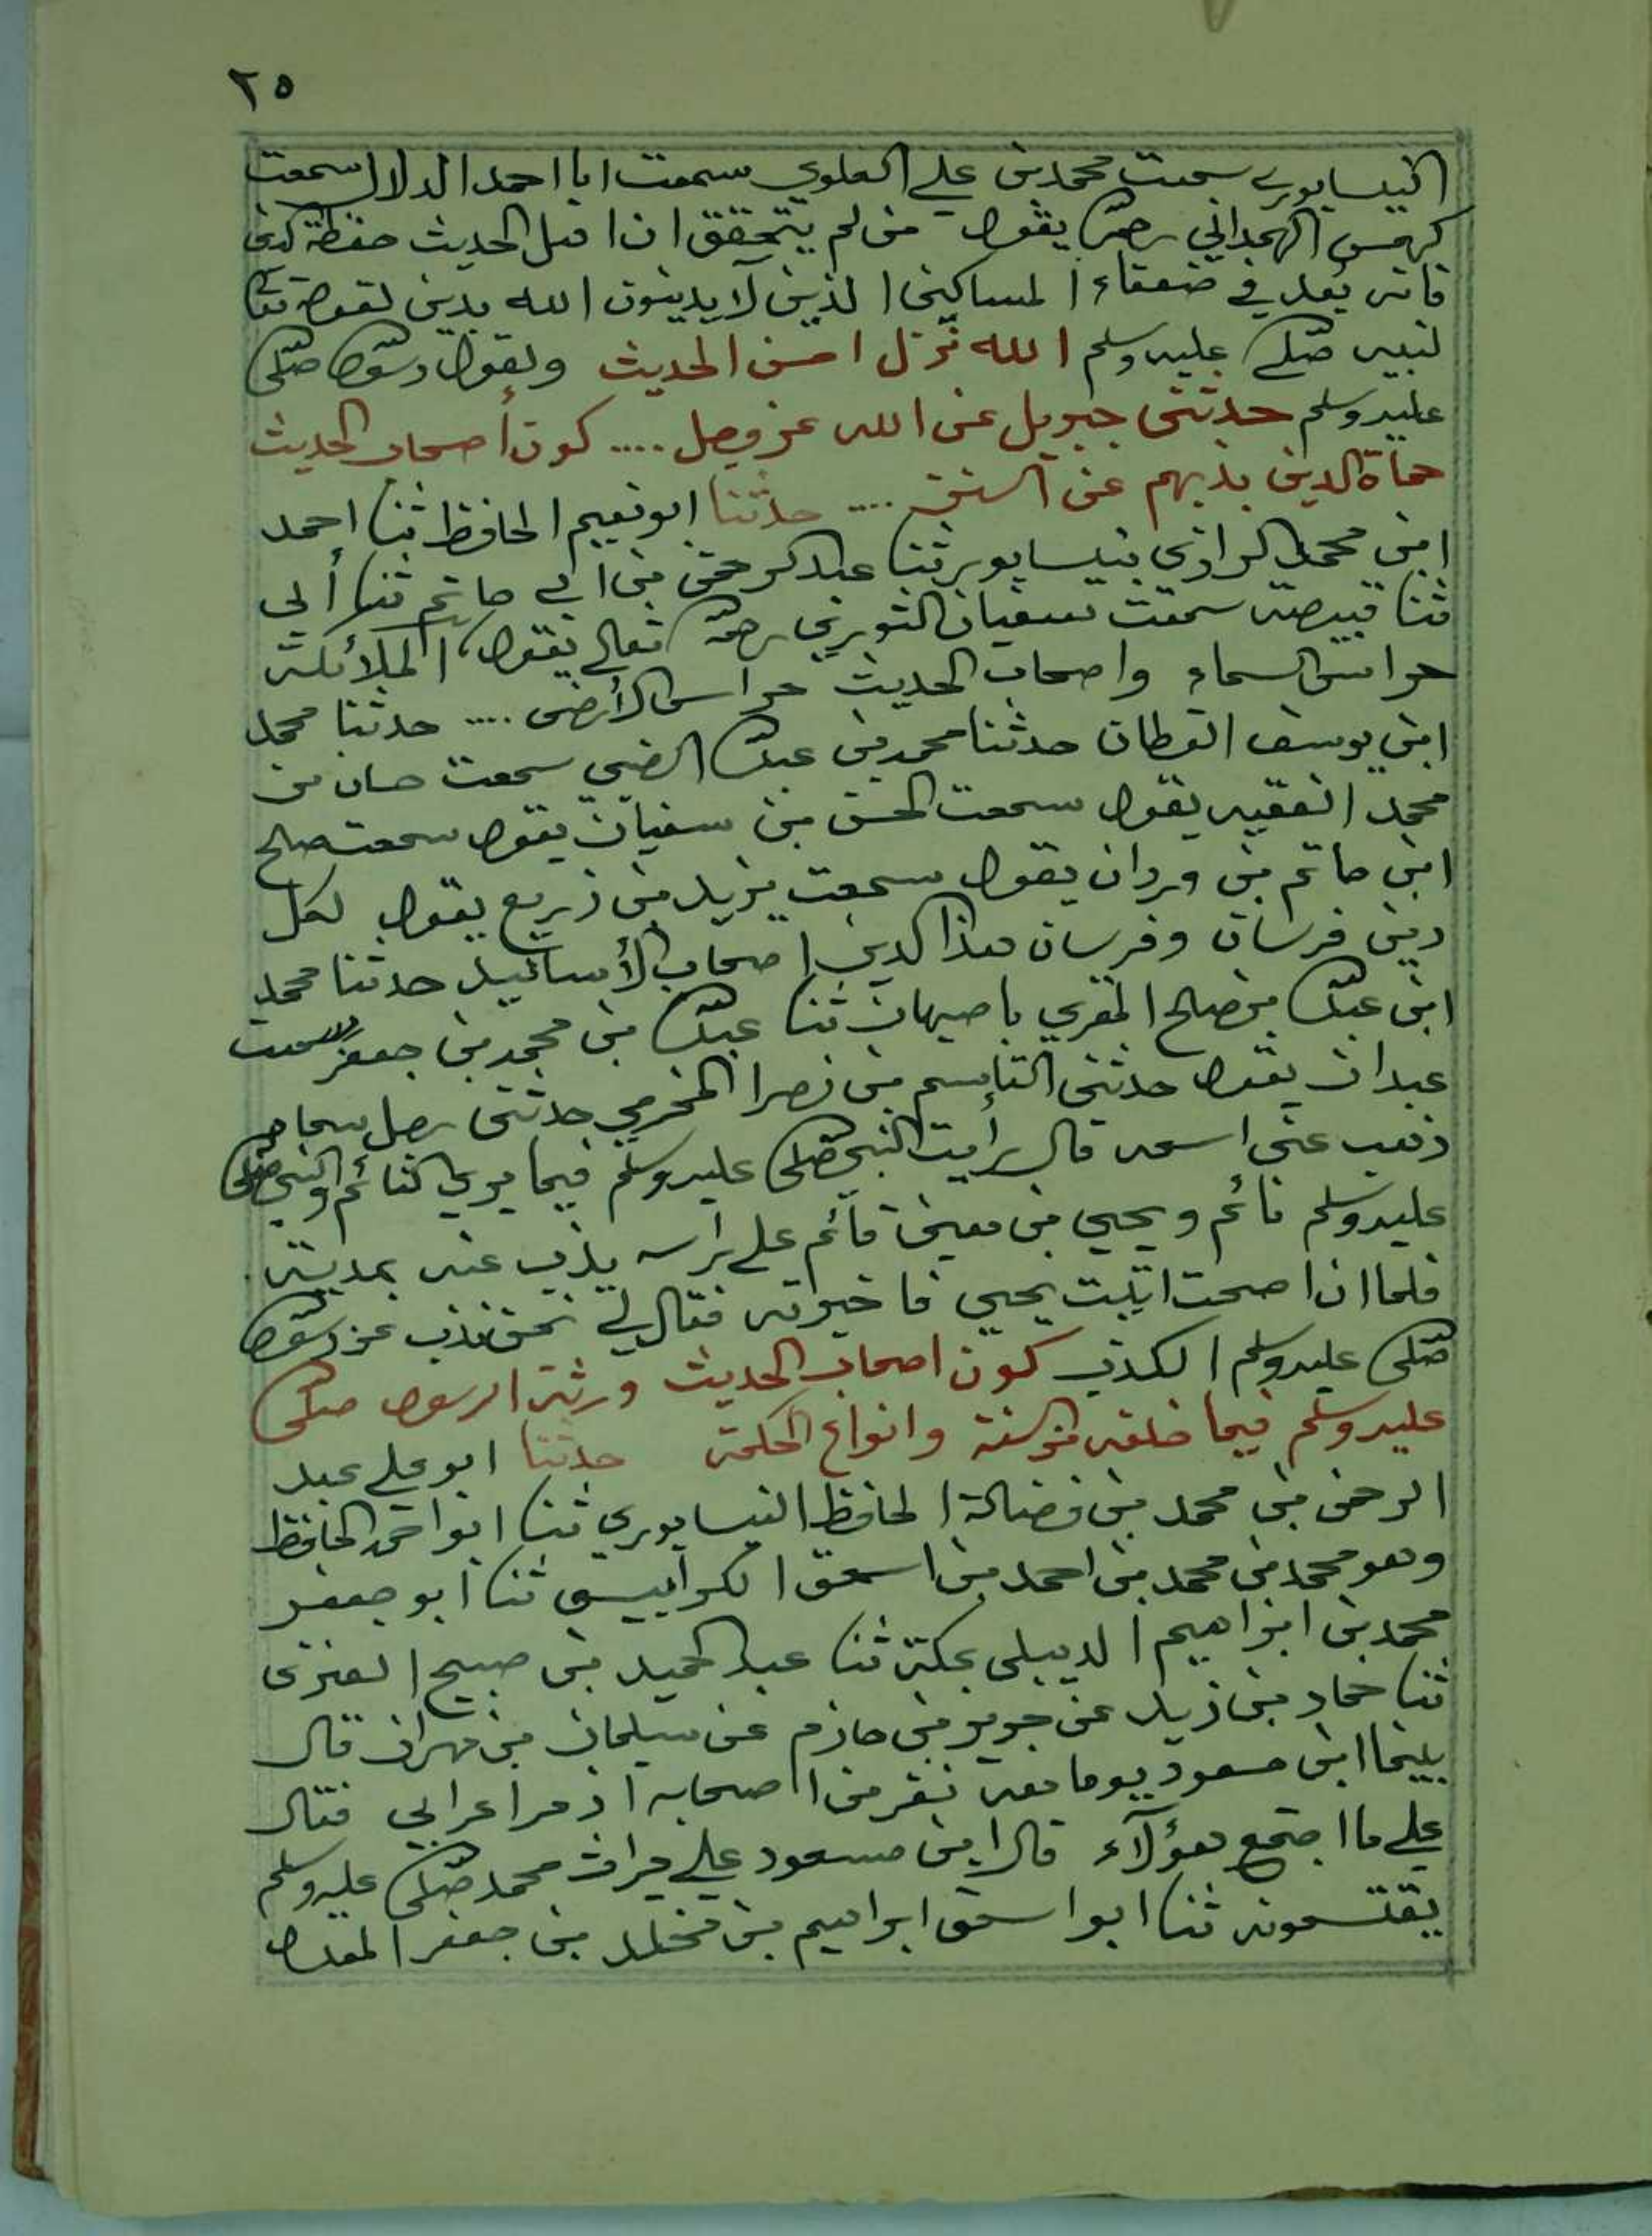 ٢٥
النيسابوري سمعت محمد بن علي العلوي سمعت ابا احمد الدلال سمعت
كهمس الهمداني رحمه الله يقول من لم يتحقق ان اهل الحديث حفظة الدين
فانه يعد في ضعفاء المساكين الذين لا يدينون الله بدين لقوله تعالى
لنبيه صلى الله عليه وسلم الله نزل احسن الحديث ويقول رسول الله صلى الله
عليه وسلم حدثني جبريل عن الله عز وجل .... كون أصحاب الحديث
حماة الدين بذبهم عن السنن .... حدثنا ابو نعيم الحافظ ثنا احمد
ابن محمد الرازي بنيسابور ثنا عبد الرحمن بن ابي حاتم ثنا أبي
ثنا قبيصه سمعت سفيان الثوري رحمه الله تعالى يقول الملائكة
حراس السماء واصحاب الحديث حراس الأرض .... حدثنا محمد
ابن يوسف القطان حدثنا محمد بن عبد الله الضبي سمعت حسان بن
محمد الفقيه يقول سمعت الحسن بن سفيان يقول سمعت صالح
ابن حاتم بن وردان يقول سمعت يزيد بن زريع يقول لكل
دين فرسان وفرسان هذا الدين اصحاب الأسانيد حدثنا محمد
ابن عبد الله بن صالح المقري باصبهان ثنا عبد الله بن محمد بن جعفر سمعت
عبدان يقول حدثني القاسم بن نصر المخرمي حدثني رجل سماه
ذهب عني اسمه قال رأيت النبي صلى الله عليه وسلم فيما يرى النائم والنبي صلى الله
عليه وسلم نائم ويحيي بن معين قائم على راسه يذب عنه بمدبته .
فلما ان اصحت اتيت يحيي فاخبرته فقال لي نحن نذب عن رسول الله
صلى الله عليه وسلم الكذب كون اصحاب الحديث ورثة الرسول صلى الله
عليه وسلم فيما خلفه من السنة وانواع الحكمة حدثنا ابو علي عبد
الرحمن بن محمد بن فضالة الحافظ النيسابوري ثنا ابو احمد الحافظ
وهو محمد بن محمد بن احمد بن اسحق الكرابيسي ثنا ابو جعفر
محمد بن ابراهيم الديبلي بمكة ثنا عبد الحميد بن صبيح العنزي
ثنا حماد بن زيد عن جرير بن حازم عن سليمان بن مهران قال
بينما ابن مسعود يوما معه نفر من اصحابه اذ مر اعرابي فقال
على ما اجتمع هؤلآء قال ابن مسعود على ميراث محمد صلى الله عليه وسلم
يقتسمونه ثنا ابو اسحق ابراهيم بن مخلد بن جعفر المعدل